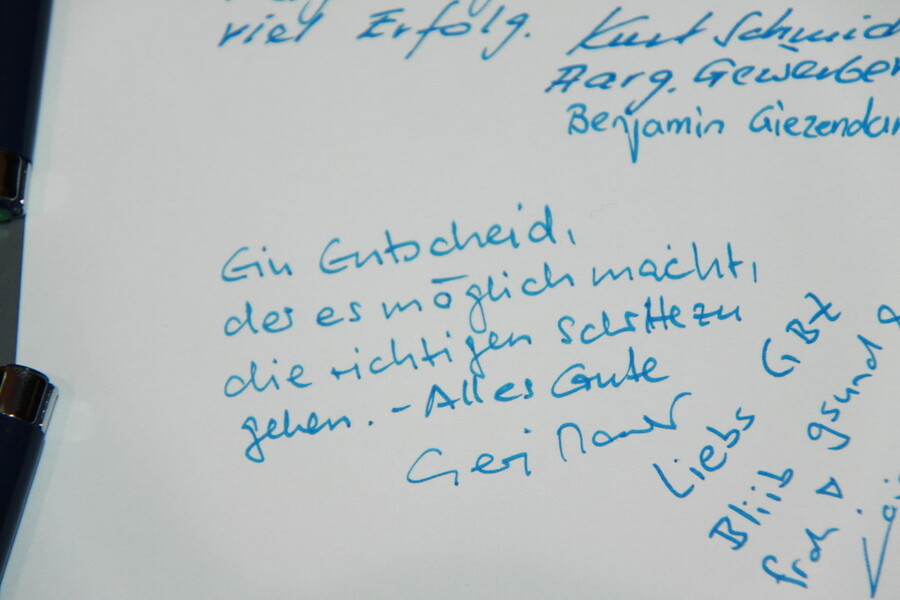 viel Erfolg. Kurt Schmid
Aarg. Gewerbe
Benjamin Giezendan
Ein Entscheid,
der es möglich macht,
die richtigen Schritte zu
gehen. - Alles Gute
Geri
Liebs GBZ
Bliib gsund &
froh